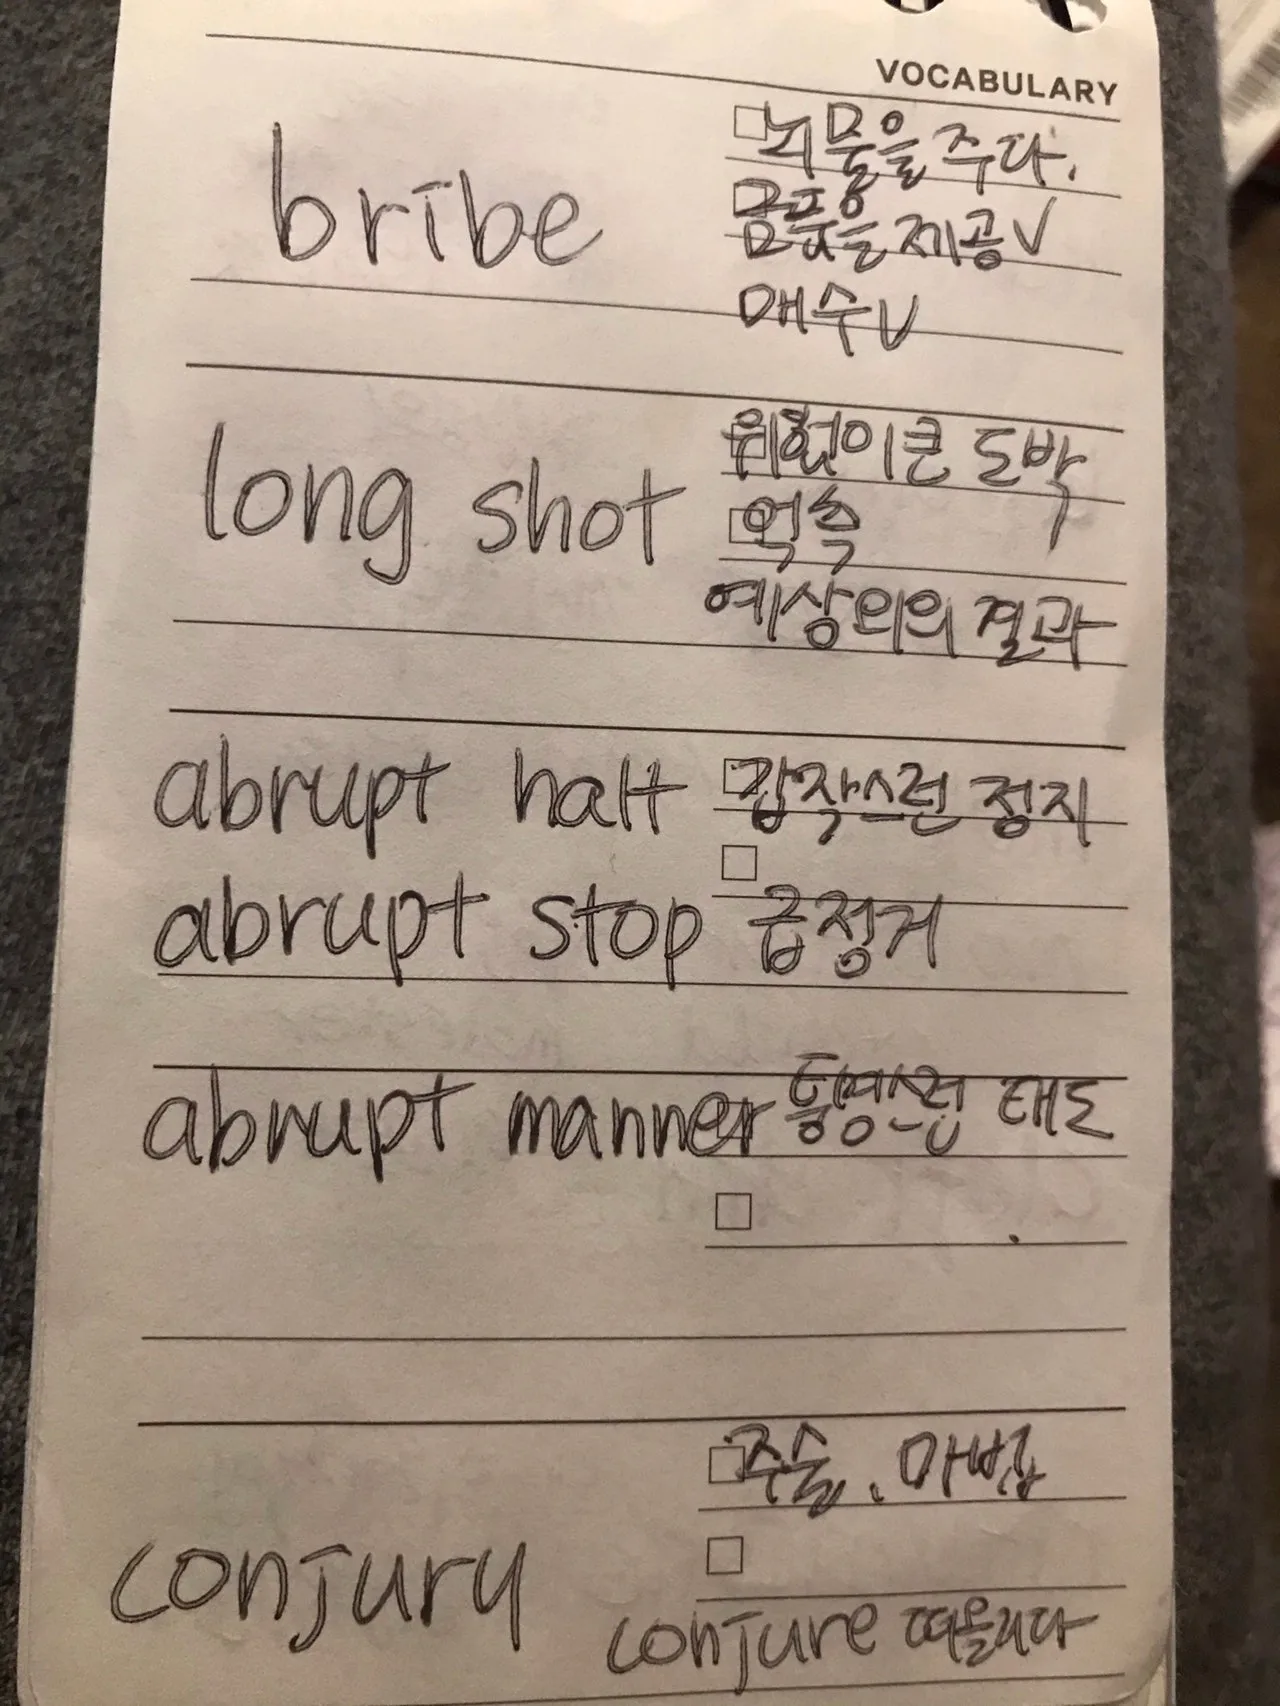 VOCABULARY
bribe 뇌물을 주다.
금품을 제공V
매수V
long shot 위험이 큰 도박
억측
예상외의 결과
abrupt halt 갑작스런 정지
abrupt stop 급정거
abrupt manner 퉁명스런 태도
주술, 마법
conjury
conjure 떠올리다